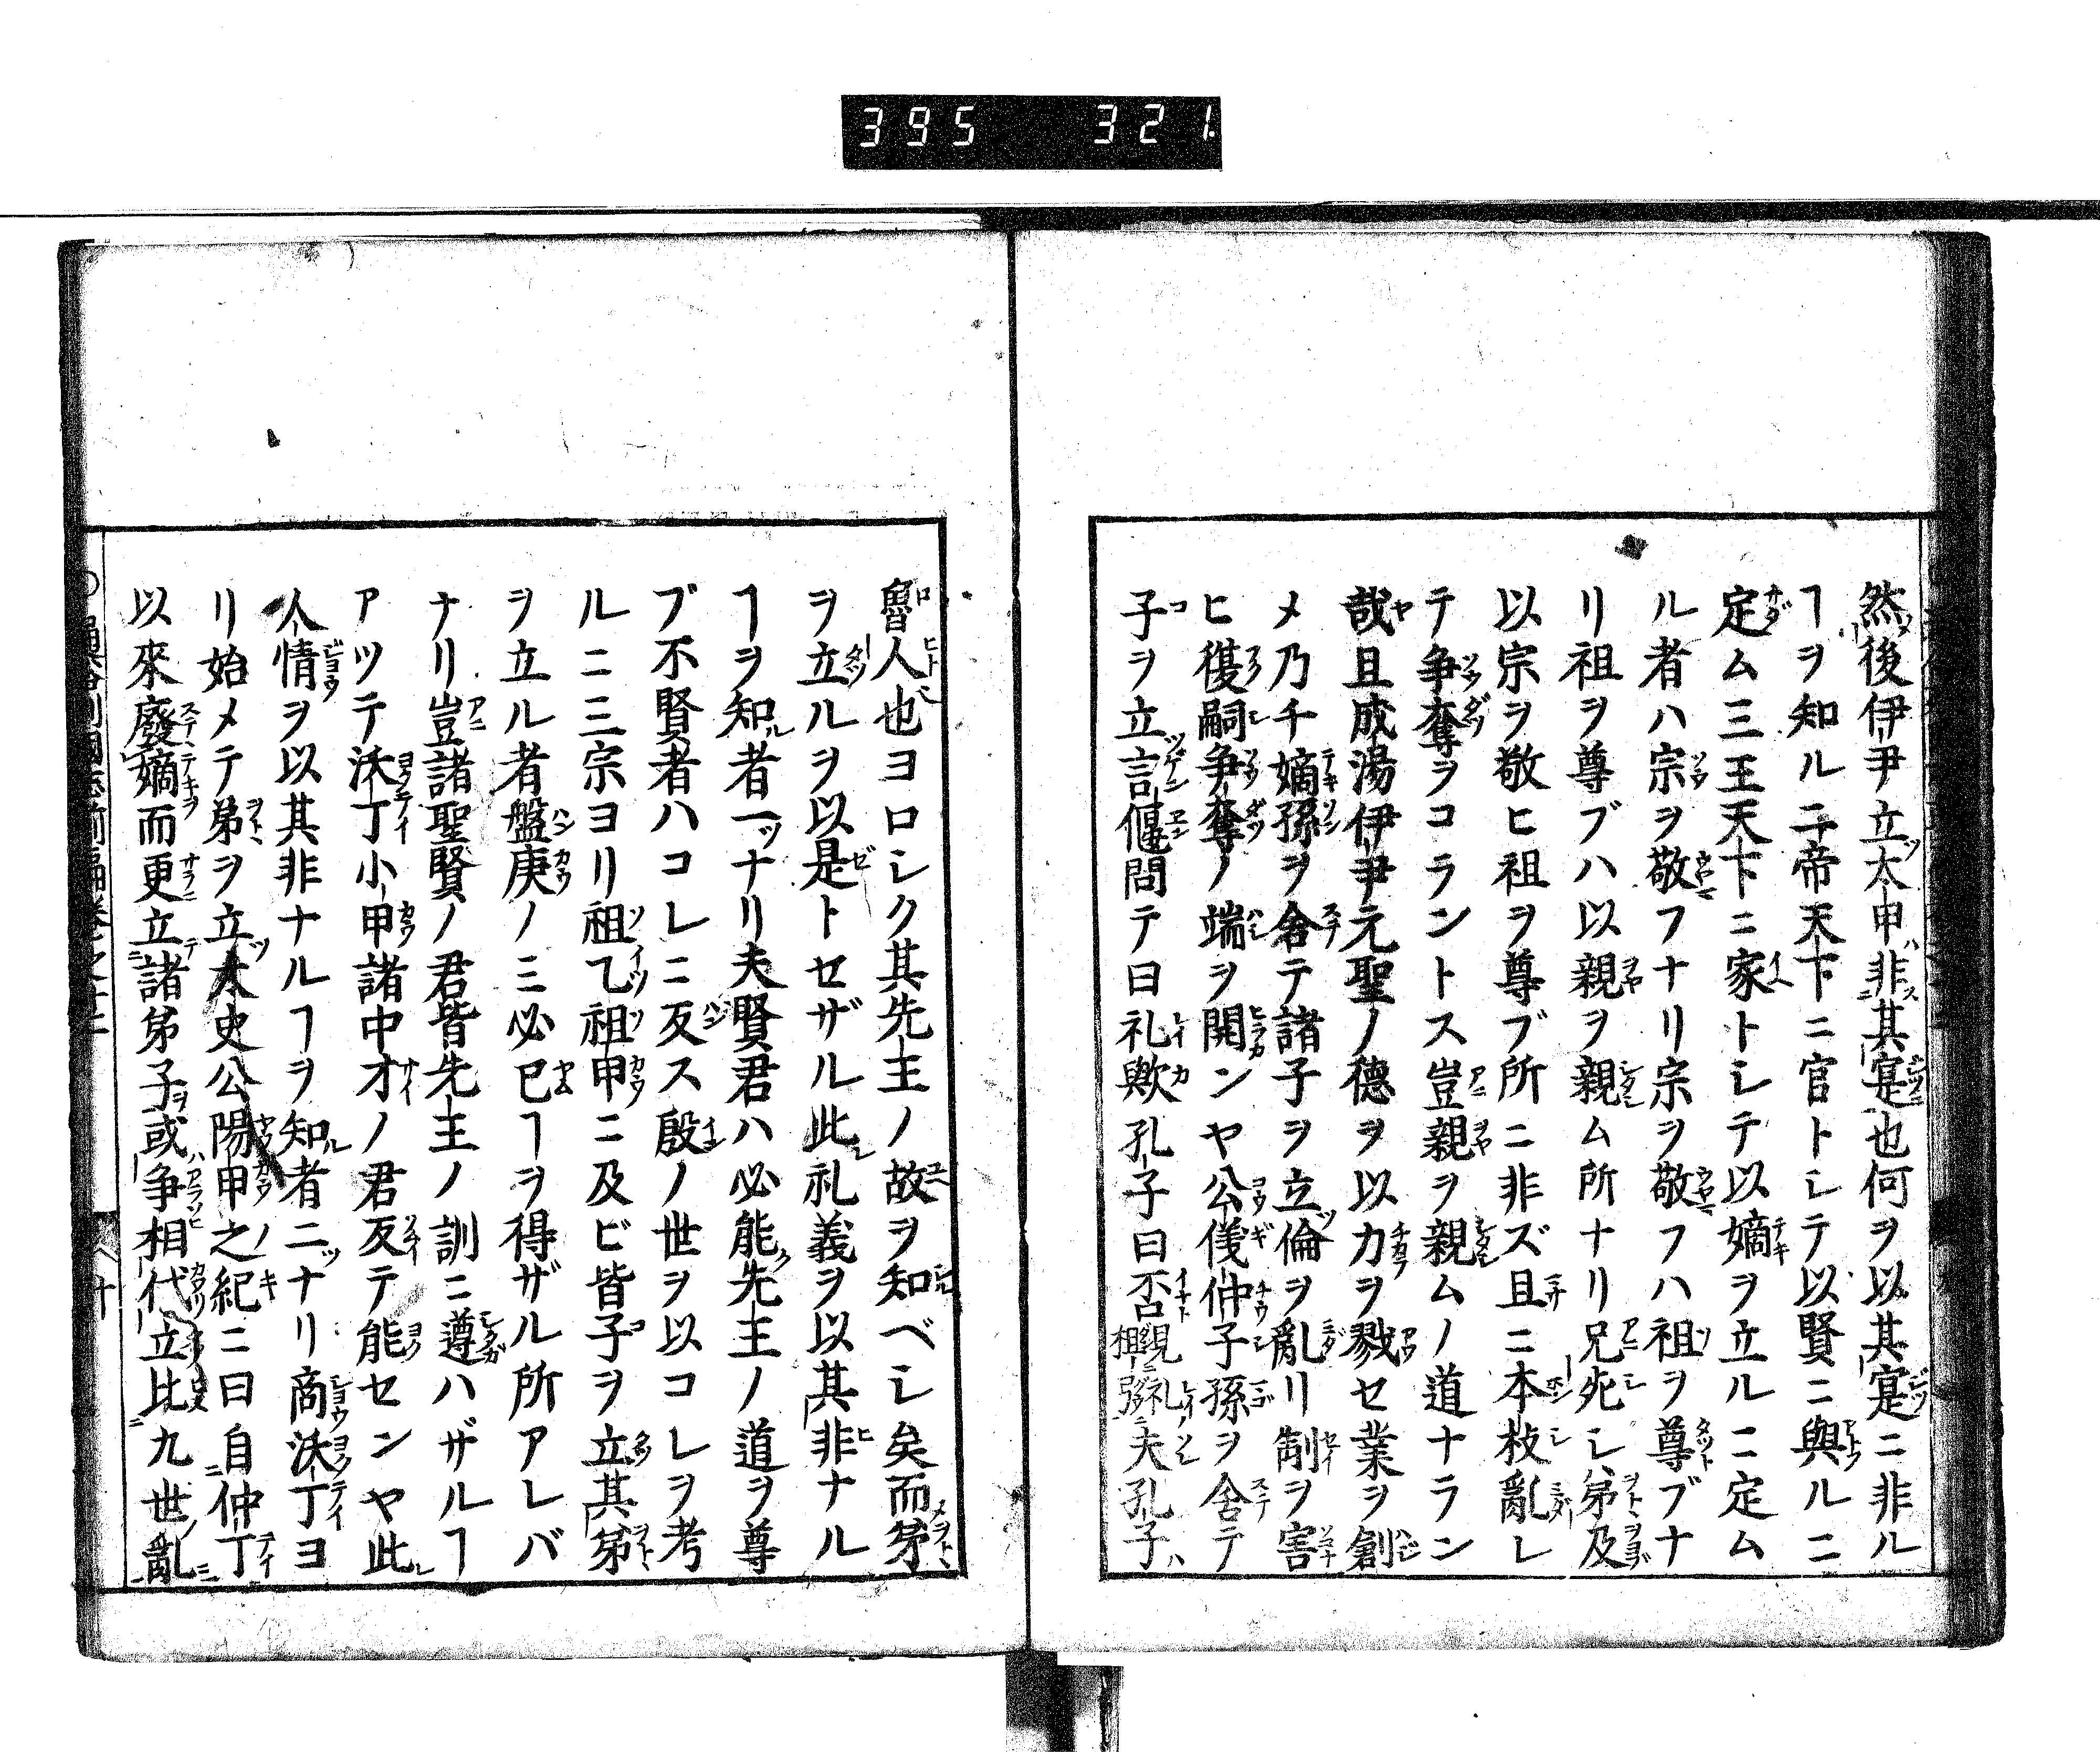 395 321
然後伊尹立太甲非其寔也何ヲ以其寔ニ非ル
ヿヲ知ル二帝天下ニ官トシテ以賢ニ與ルニ
定ム三王天下ニ家トシテ以嫡ヲ立ルニ定ム
ル者ハ宗ヲ敬フナリ宗ヲ敬フハ祖ヲ尊ブナ
リ祖ヲ尊ブハ以親ヲ親ム所ナリ兄死シ弟及
以宗ヲ敬ヒ祖ヲ尊ブ所ニ非ズ且ニ本枝亂レ
テ争奪ヲコラントス豈親ヲ親ムノ道ナラン
哉且成湯伊尹元聖ノ德ヲ以力ヲ戮セ業ヲ創
メ乃千嫡孫ヲ舍テ諸子ヲ立倫ヲ亂リ制ヲ害
ヒ後嗣争奪ノ端ヲ開ンヤ公儀仲子孫ヲ舍テ
子ヲ立言偃問テ曰礼歟孔子曰否夫孔子
魯人也ヨロシク其先王ノ故ヲ知ベシ矣而弟
ヲ立ルヲ以是トセザル此礼義ヲ以其非ナル
ヿヲ知者一ナリ夫賢君ハ必能先王ノ道ヲ尊
ブ不賢者ハコレニ反ス殷ノ世ヲ以コレヲ考
ルニ三宗ヨリ祖乙祖甲ニ及ビ皆子ヲ立其弟
ヲ立ル者盤庚ノミ必已ヿヲ得ザル所アレバ
ナリ豈諸聖賢ノ君皆先王ノ訓ニ遵ハザルヿ
アツテ沃丁小甲諸中才ノ君反テ能センヤ此
人情ヲ以其非ナルヿヲ知者二ナリ商沃丁ヨ
リ始メテ弟ヲ立太史公陽甲之紀ニ曰自仲丁
以來廢嫡而更立諸弟子或争相代立比九世亂